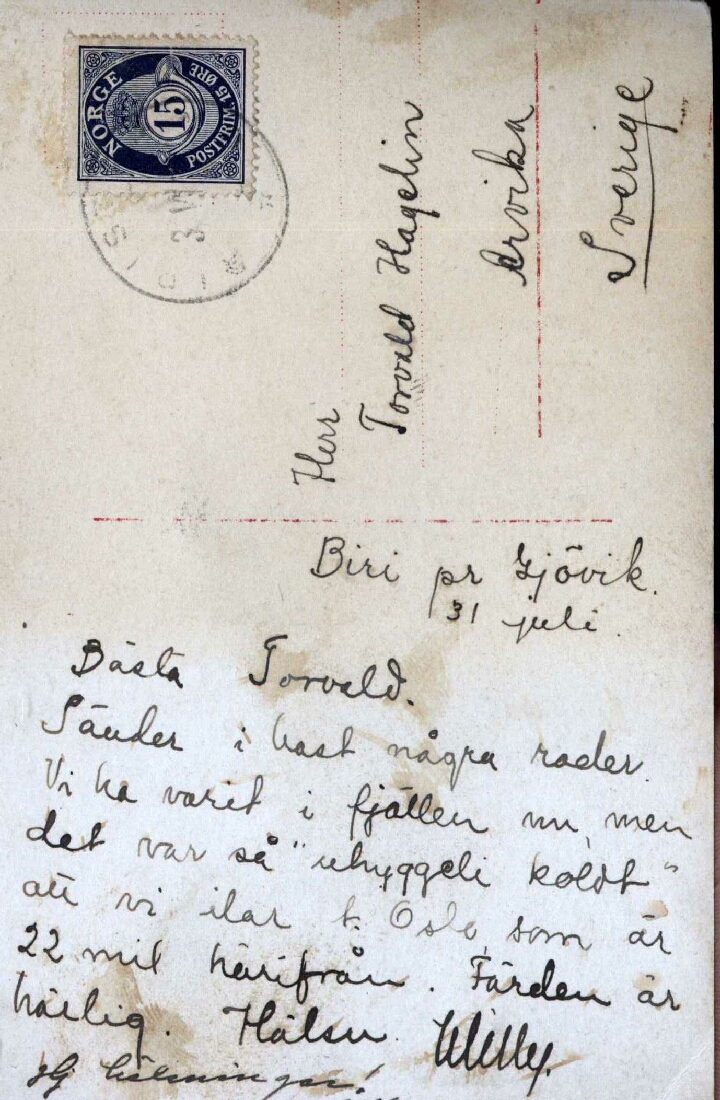 NORGE
15
POSTFRIM. 15 ØRE
Herr
Torvald Hagelin
Arvika
Sverige
Biri pr Gjövik.
31 juli.
Bästa Torvald.
Sänder i hast några rader.
Vi ha varit i fjällen nu, men
det var så "uhyggeli koldt"
att vi ilar t. Oslo, som är
22 mil härifrån. Färden är
härlig. Hälsn. Willy.
Hj hälsningar!